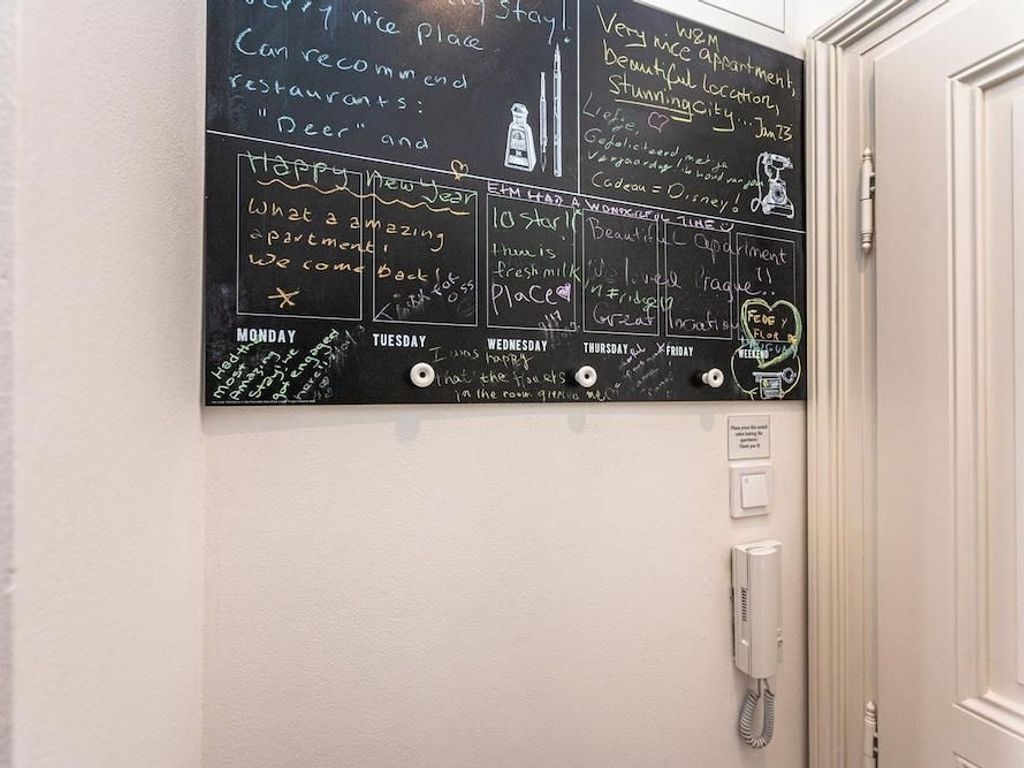 Stay!
very nice place
Can recommend
restaurants:
"Deer" and
W&M
Very nice appartment,
beautiful location,
Stunning city... Jan 23
Liefje,
Gefeliciteerd met je
verjaardag ik houd van jou
Cadeau = Disney!
Happy New Year
What a amazing
apartment!
We come back!
E+M HAD A WONDERFUL TIME
10 stars
there is
fresh milk
in fridge
PLaCe
Beautiful apartment
We loved Prague!!
Great location
FEDE Y
FLOR
MONDAY
TUESDAY
WEDNESDAY
THURSDAY
FRIDAY
WEEKEND
Had the
most
Amazing
Stay! We
got engaged
here
I was happy
that the flowers
in the room greeted me
Please press this switch
when leaving the
apartment.
Thank you